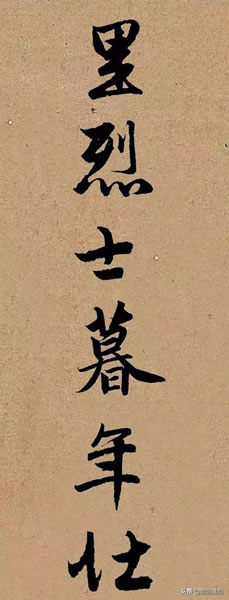 里烈士暮年壮
头条